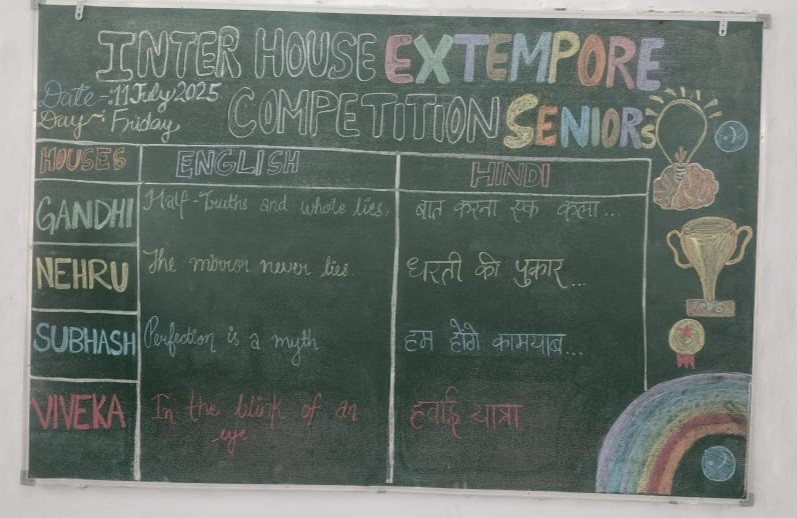 INTER HOUSE EXTEMPORE
Date-:11 July 2025
COMPETITION SENIORS
Day-: Friday
HOUSES ENGLISH HINDI
GANDHI Half-Truths and whole lies, बात करना एक कला...
NEHRU The mirror never lies. धरती की पुकार...
SUBHASH Perfection is a myth हम होंगे कामयाब...
VIVEKA In the blink of an हवाई यात्रा
eye